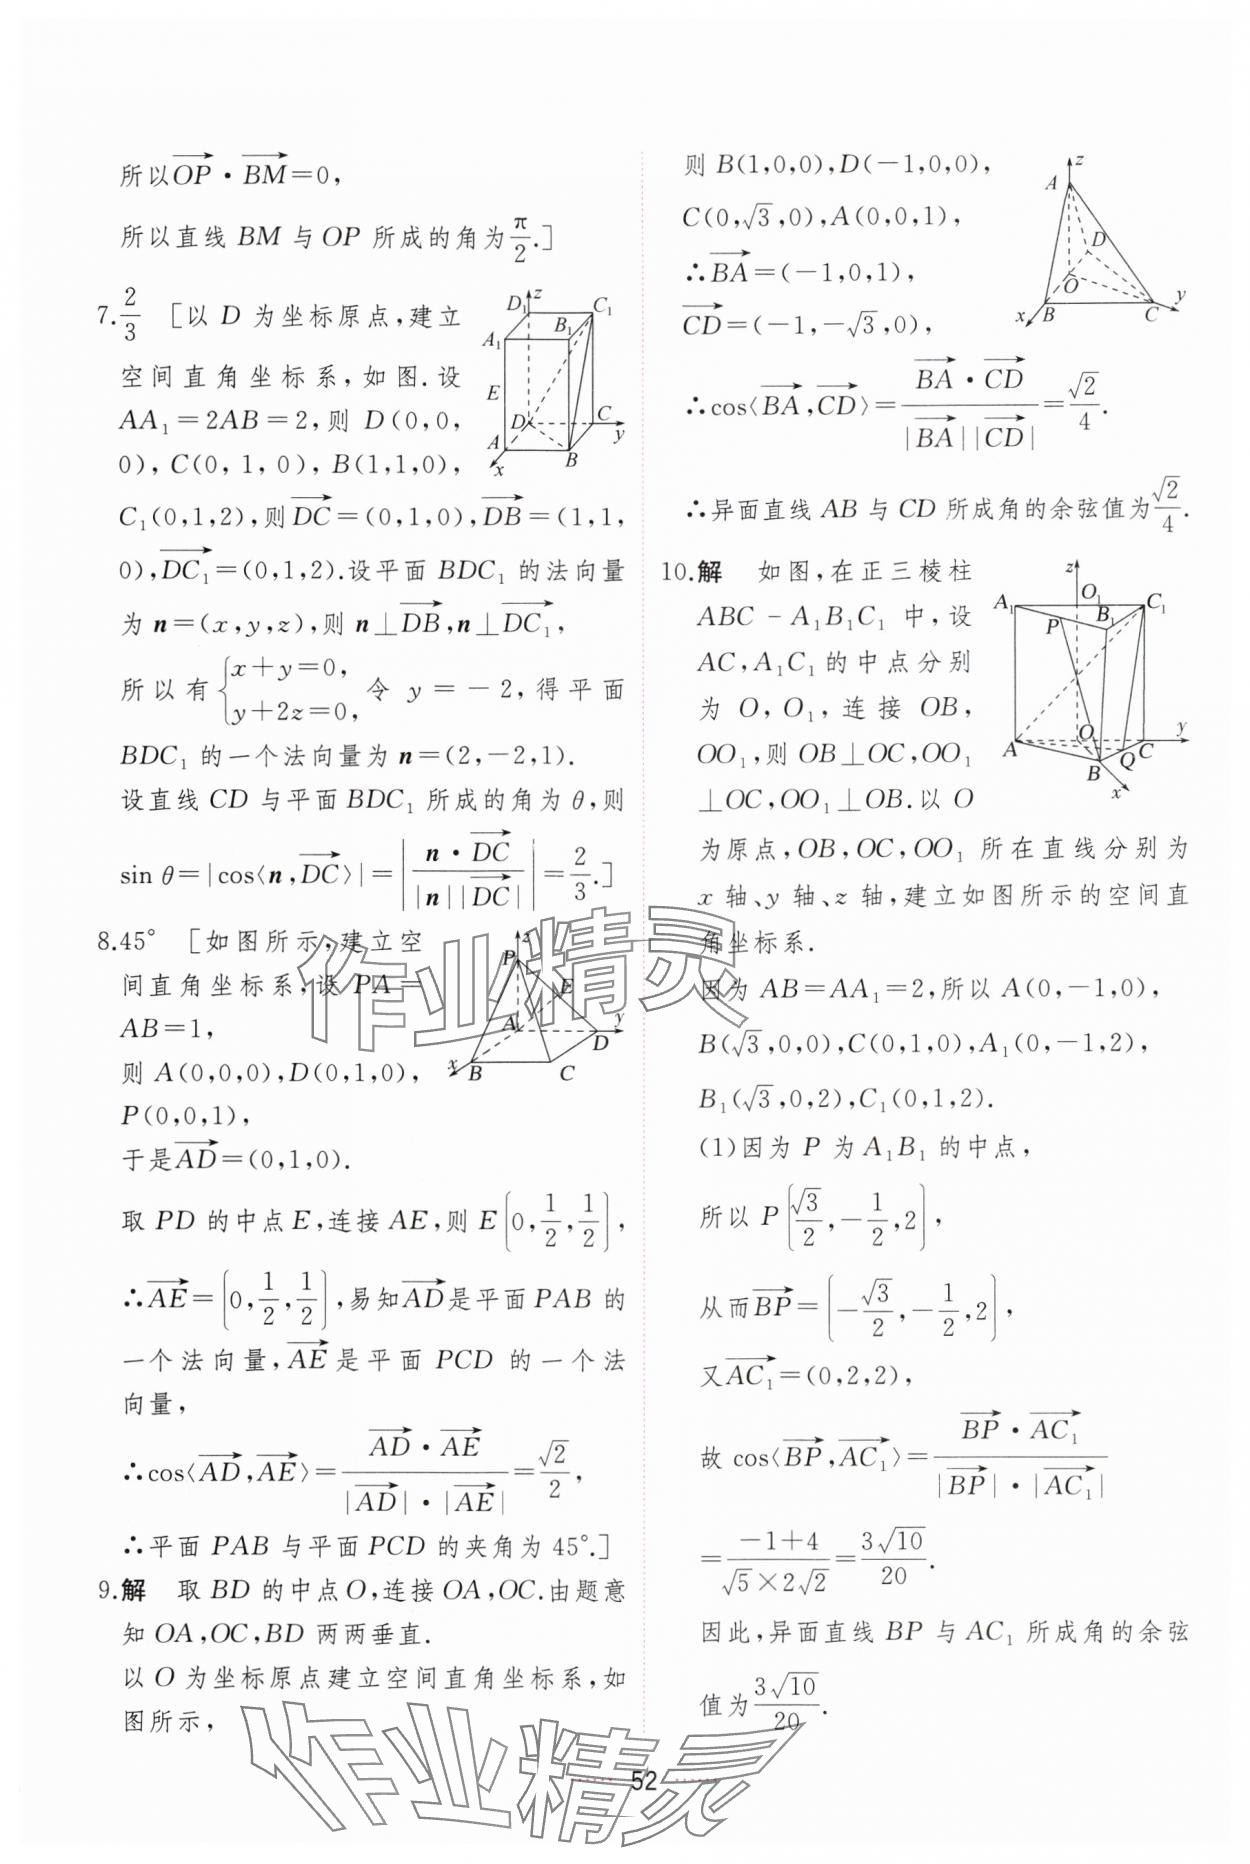 所以OP·BM=0,
所以直线 BM 与 OP 所成的角为π/2.]
7.2/3 [以 D 为坐标原点,建立
空间直角坐标系,如图.设
AA₁=2AB=2,则 D(0,0,
0),C(0,1,0),B(1,1,0),
C₁(0,1,2),则DC=(0,1,0),DB=(1,1,
0),DC₁=(0,1,2).设平面 BDC₁ 的法向量
为 n=(x,y,z),则 n⊥DB,n⊥DC₁,
所以有{x+y=0, y+2z=0, 令 y=-2,得平面
BDC₁ 的一个法向量为 n=(2,-2,1).
设直线 CD 与平面 BDC₁ 所成的角为 θ,则
sin θ=|cos⟨n,DC⟩|=|n·DC/|n||DC||=2/3.]
D₁ z C₁ B₁ A₁ E D C y A B x
8.45° [如图所示,建立空
间直角坐标系,设 PA=
AB=1,
则 A(0,0,0),D(0,1,0),
P(0,0,1),
于是AD=(0,1,0).
z P E A y D x B C
取 PD 的中点 E,连接 AE,则 E(0,1/2,1/2),
∴AE=(0,1/2,1/2),易知AD是平面 PAB 的
一个法向量,AE是平面 PCD 的一个法
向量,
∴cos⟨AD,AE⟩=AD·AE/|AD|·|AE|=√2/2,
∴平面 PAB 与平面 PCD 的夹角为 45°.]
9.解 取 BD 的中点 O,连接 OA,OC.由题意
知 OA,OC,BD 两两垂直.
以 O 为坐标原点建立空间直角坐标系,如
图所示,
则 B(1,0,0),D(-1,0,0),
C(0,√3,0),A(0,0,1),
∴BA=(-1,0,1),
CD=(-1,-√3,0),
∴cos⟨BA,CD⟩=BA·CD/|BA||CD|=√2/4.
∴异面直线 AB 与 CD 所成角的余弦值为√2/4.
z A D O y x B C
10.解 如图,在正三棱柱
ABC-A₁B₁C₁ 中,设
AC,A₁C₁ 的中点分别
为 O,O₁,连接 OB,
OO₁,则 OB⊥OC,OO₁
⊥OC,OO₁⊥OB.以 O
为原点,OB,OC,OO₁ 所在直线分别为
x 轴、y 轴、z 轴,建立如图所示的空间直
角坐标系.
z A₁ O₁ C₁ P B₁ y A O C B Q x
因为 AB=AA₁=2,所以 A(0,-1,0),
B(√3,0,0),C(0,1,0),A₁(0,-1,2),
B₁(√3,0,2),C₁(0,1,2).
(1)因为 P 为 A₁B₁ 的中点,
所以 P(√3/2,-1/2,2),
从而BP=(-√3/2,-1/2,2),
又AC₁=(0,2,2),
故 cos⟨BP,AC₁⟩=BP·AC₁/|BP|·|AC₁|
=-1+4/√5×2√2=3√10/20.
因此,异面直线 BP 与 AC₁ 所成角的余弦
值为3√10/20.
52
作业精灵
作业精灵